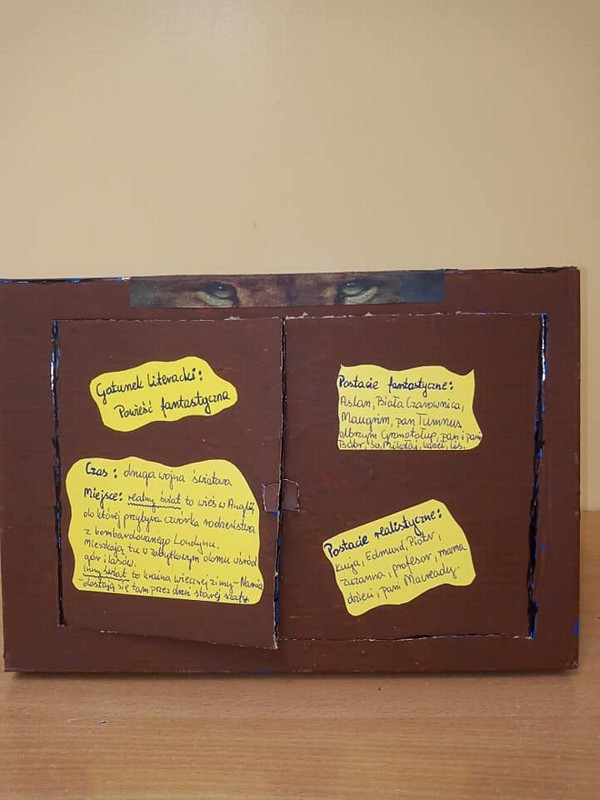 Gatunek literacki:
Powieść fantastyczna
Czas: druga wojna światowa
Miejsce: realny świat to wieś w Anglii,
do której przybywa czwórka rodzeństwa
z bombardowanego Londynu.
Mieszkają tu w zabytkowym domu wśród
gór i lasów.
Inny świat to kraina wiecznej zimy - Narnia
- dostają się tam przez drzwi starej szafy.
Postacie fantastyczne:
Aslan, Biała Czarownica,
Maugrim, pan Tumnus
olbrzym Gromotołup, pan i pani
Bóbr, św. Mikołaj, lis.
Postacie realistyczne:
Łucja, Edmund, Piotr,
Zuzanna, profesor, mama
dzieci, pani Macready.